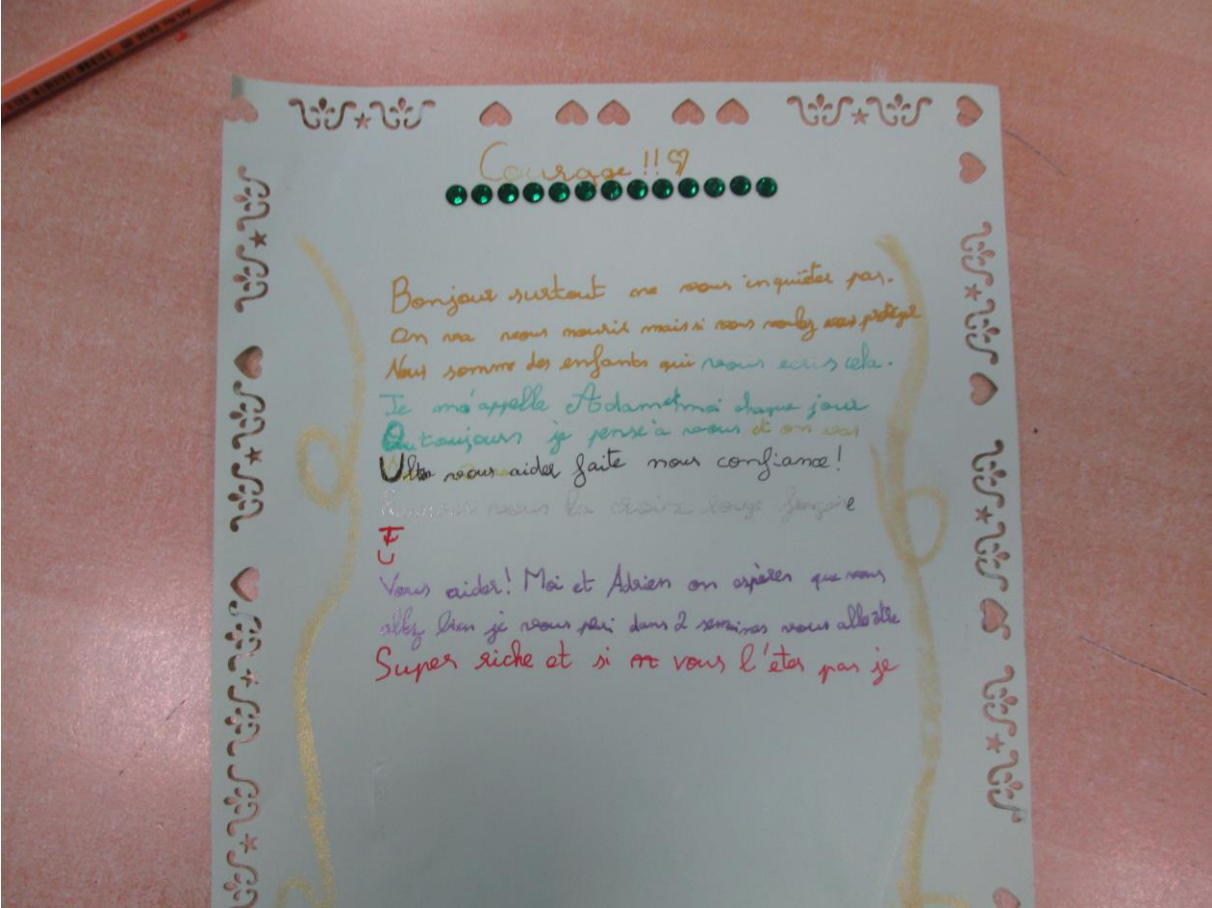 Courage !!♡
Bonjour surtout ne vous inquiéter pas.
On va vous nourir mais si vous voulez vous protégé
Nous somme des enfants qui vous ecris cela.
Je m'appelle Adam et moi chaque jour
toujours je pense a vous et on vas
vous aider faite nous confiance!
nous la croix rouge
Vous aider! Moi et Adrien on espères que vous
allez bien je vous dans 2 semaines vous
Super riche et si vous l'êtes pas je